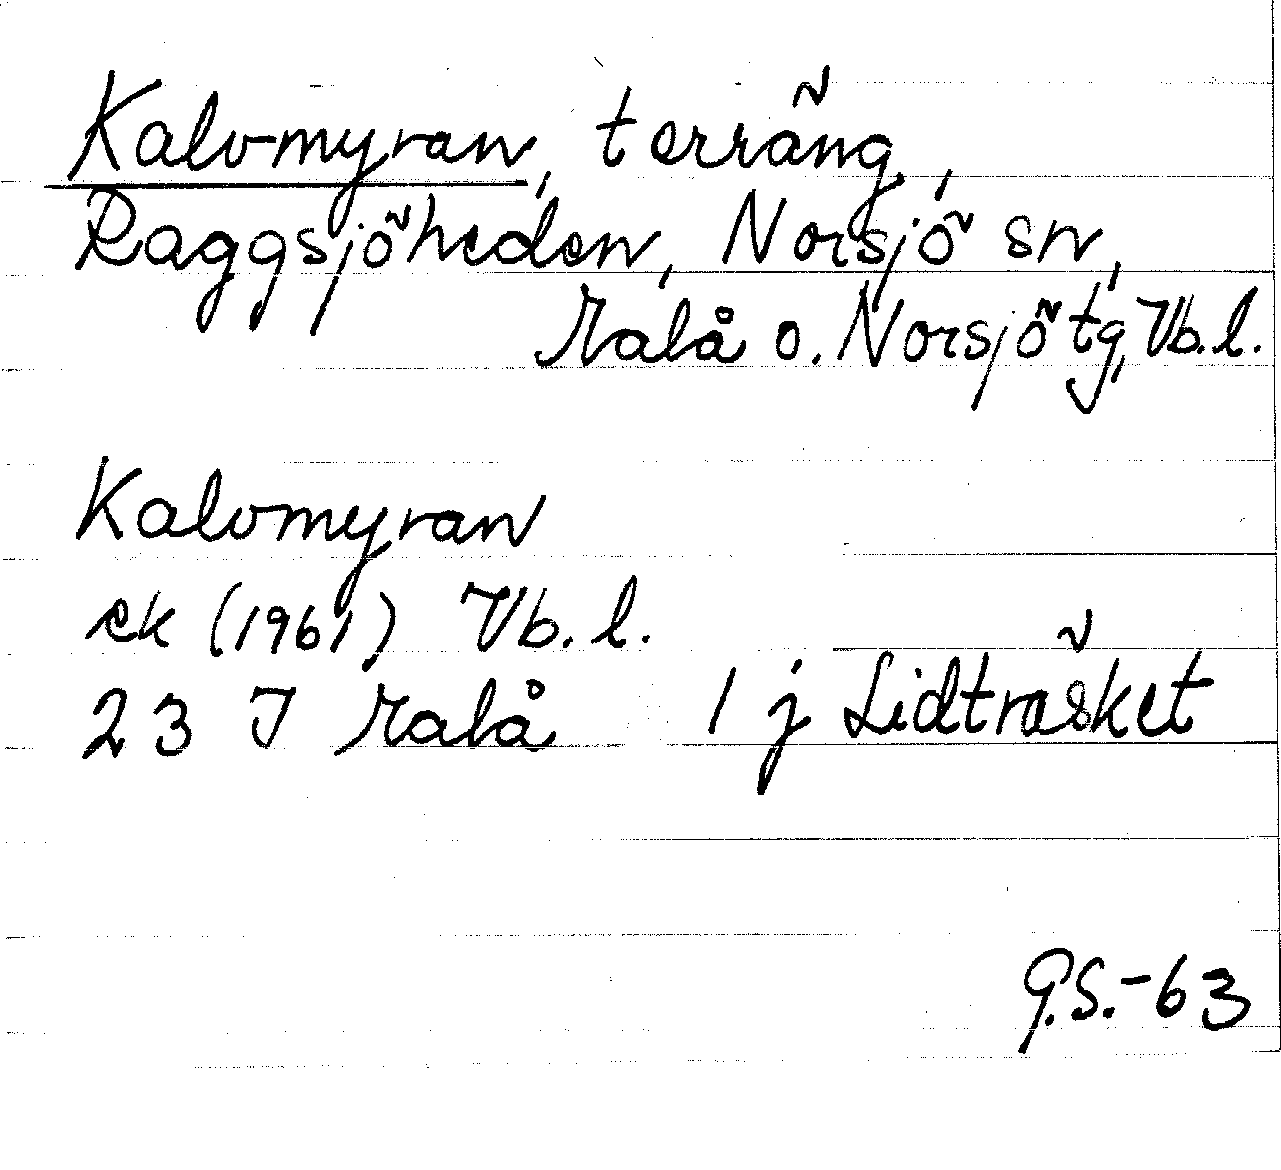 Kalvmyran, terräng,
Raggsjöheden, Norsjö sn,
Malå o. Norsjö tg, Vb. l.
Kalvmyran
ek (1961) Vb. l.
23 J Malå 1 j Lidträsket
G.S.-63